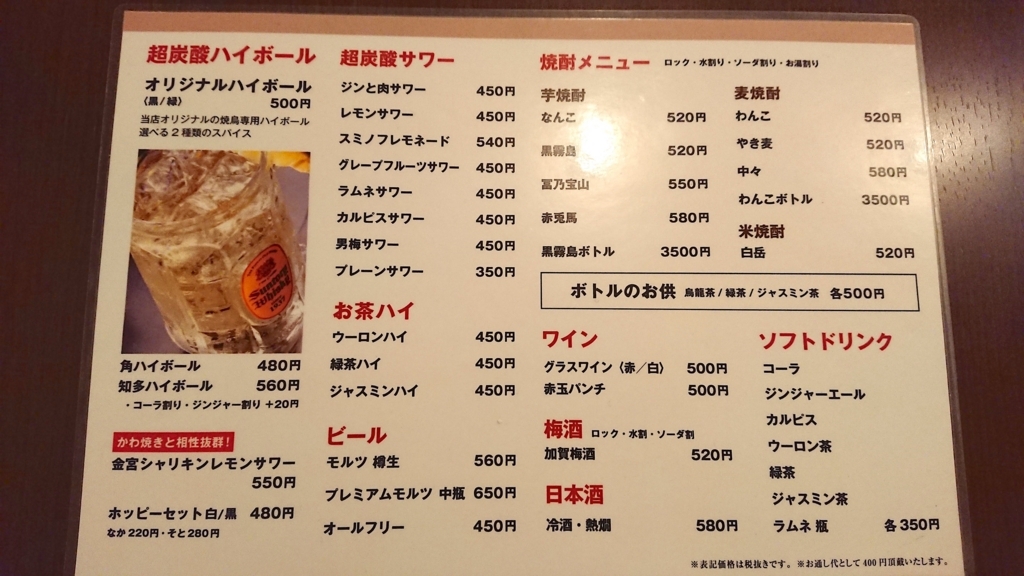 超炭酸ハイボール
オリジナルハイボール
〈黒/緑〉 500円
当店オリジナルの焼鳥専用ハイボール
選べる2種類のスパイス
角ハイボール 480円
知多ハイボール 560円
・コーラ割り・ジンジャー割り +20円
かわ焼きと相性抜群!
金宮シャリキンレモンサワー
550円
ホッピーセット白/黒 480円
なか220円・そと280円
超炭酸サワー
ジンと肉サワー 450円
レモンサワー 450円
スミノフレモネード 540円
グレープフルーツサワー 450円
ラムネサワー 450円
カルピスサワー 450円
男梅サワー 450円
プレーンサワー 350円
お茶ハイ
ウーロンハイ 450円
緑茶ハイ 450円
ジャスミンハイ 450円
ビール
モルツ 樽生 560円
プレミアムモルツ 中瓶 650円
オールフリー 450円
焼酎メニュー ロック・水割り・ソーダ割り・お湯割り
芋焼酎
なんこ 520円
黒霧島 520円
冨乃宝山 550円
赤兎馬 580円
黒霧島ボトル 3500円
麦焼酎
わんこ 520円
やき麦 520円
中々 580円
わんこボトル 3500円
米焼酎
白岳 520円
ボトルのお供 烏龍茶/緑茶/ジャスミン茶 各500円
ワイン
グラスワイン〈赤/白〉 500円
赤玉パンチ 500円
梅酒 ロック・水割・ソーダ割
加賀梅酒 520円
日本酒
冷酒・熱燗 580円
ソフトドリンク
コーラ
ジンジャーエール
カルピス
ウーロン茶
緑茶
ジャスミン茶
ラムネ 瓶 各350円
※表記価格は税抜きです。※お通し代として400円頂戴いたします。